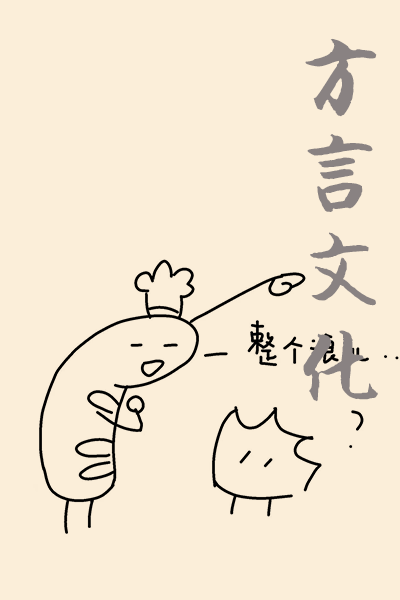 方言文化
整个浪儿...
?